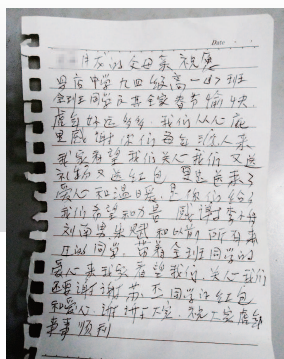 Date
月成的父母亲祝愿
中学九四级高一(7)班
全班同学及其全家春节愉快
虎年好运多多.我们从心底
里感谢你们每年派人来
我家看望我们关心我们又送
礼物又送红包 是送来了
爱心和温暖,是你们给了
我们希望和力量 感谢李
刘南 和以前所有来
的同学 带着全班同学的
爱心来我家看望我们,关心我们
还要谢谢 同学的红包
和爱心.谢谢大家,祝大家虎年
事事顺利